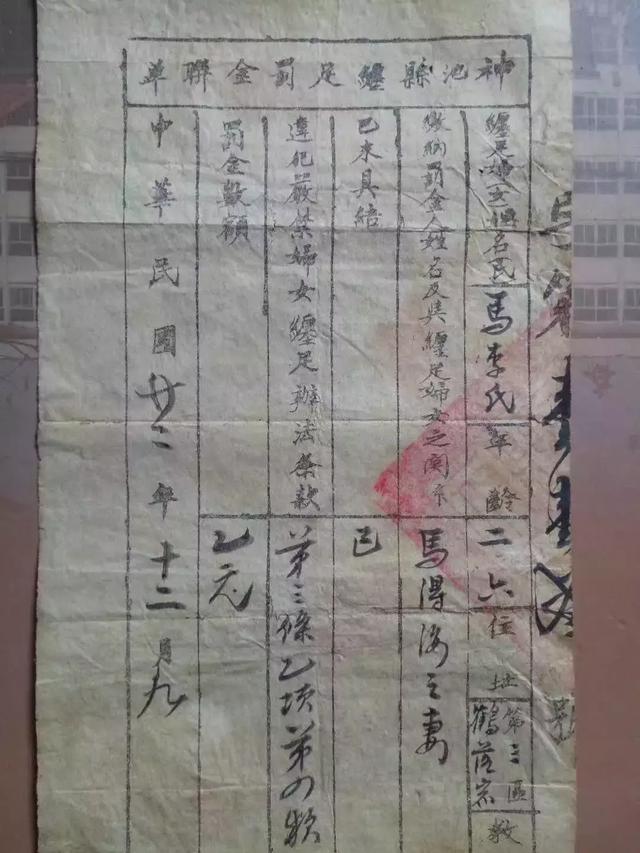 神池縣纏足罰金聯單
纏足婦女姓名氏 馬李氏 年齡 二六 住址 第三區
繳納罰金人姓名及與纏足婦女之関係 馬得海之妻
已未具結 已
違犯嚴禁婦女纏足辦法條款 第三條乙項第四類
罰金數額 乙元
中華民國廿二年十二月九